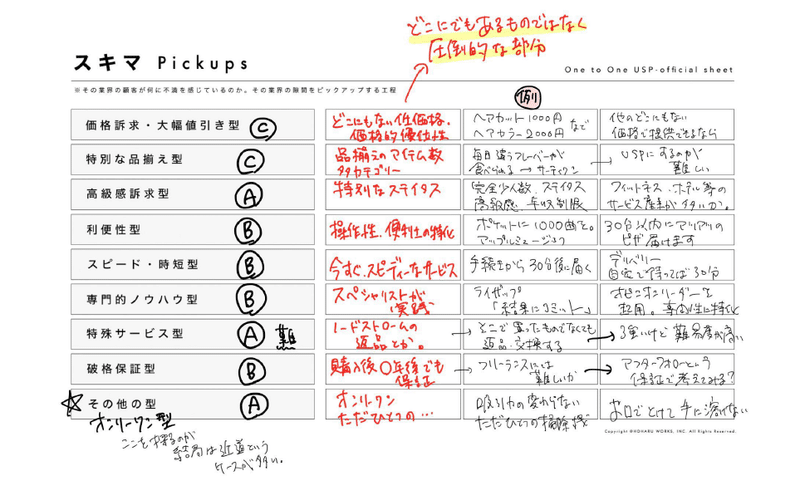 どこにでもあるものではなく
圧倒的な部分
スキマ Pickups
One to One USP-official sheet
※その業界の顧客が何に不満を感じているのか。その業界の隙間をピックアップする工程
例
価格訴求・大幅値引き型 C
どこにもない低価格、
価格的優位性
ヘアカット1000円
ヘアカラー2000円 など
他のどこにもない
価格で提供できるなら
特別な品揃え型 C
品揃えのアイテム数
多カテゴリー
毎日違うフレーバーが
食べられる → サーティワン
→ USPにするのが
難しい
高級感訴求型 A
特別なステイタス
完全少人数、ステイタス
高級感、年収制限
フィットネス、ホテル等の
サービス産業が多いか。
利便性型 B
操作性、便利さの特化
ポケットに1000曲を。
アップルミュージック
30分以内にアツアツの
ピザ届けます
スピード・時短型 B
今すぐ、スピーディーなサービス
手続きから30分後に届く
デリバリー
自宅で待ってば30分
専門的ノウハウ型 B
スペシャリストが
実践
ライザップ
「結果にコミット」
オピニオンリーダーを
起用。専門性に特化
特殊サービス型 A 難
ノードストロームの
返品とか。
→ どこで買ったものでなくても
返品、交換する
→ 3強いけど難易度が高い
破格保証型 B
購入後〇年後でも
保証
→ フリーランスには
難しいか
→ アフターフォローという
保証で考えてみる?
☆その他の型 A
オンリーワン型
オンリーワン
ただひとつの…
吸引力の変わらない
ただひとつの掃除機
お口でとけて手に溶けない
ここを探るのが
結局は近道という
ケースが多い。
Copyright ©KOHARU WORKS, INC. All Rights Reserved.